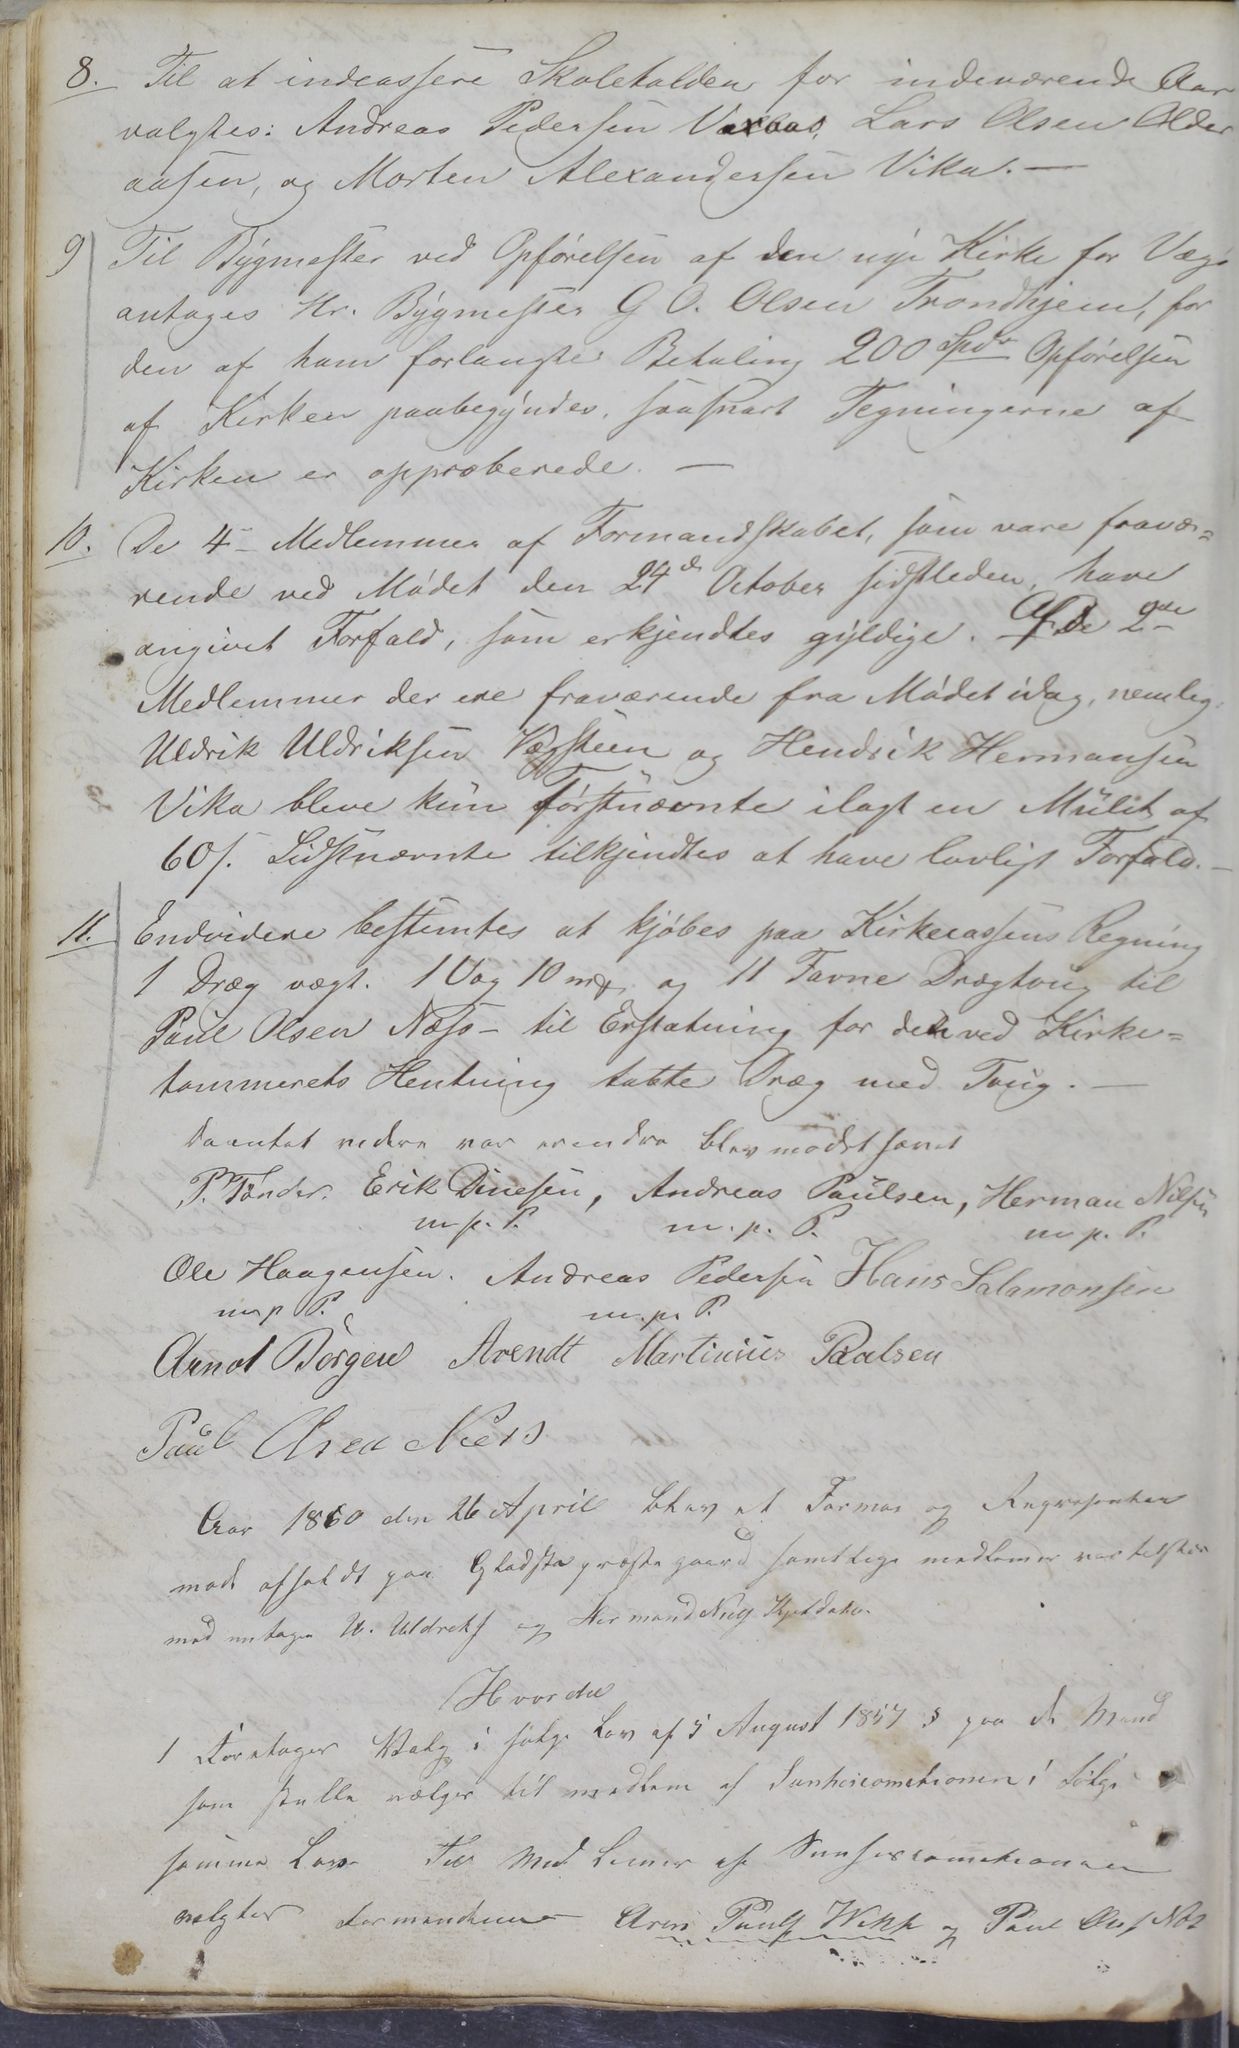 8. Til at indcassere Skoletolden for indeværende Aar
valgtes: Andreas Pedersen Lars Olsen Older
aasen, og Morten Alexandersen Vika. —
9 Til Bygmester ved Opførelsen af den nye Kirke for Vega
antages Hr. Bygmester G O. Olsen Trondhjem, for
den af ham forlangte Betaling 200 Spdr Opførelsen
af Kirken paabegyndes, saasnart Tegningerne af
Kirken er approberede. —
10. De 4 - Medlemmer af Formandskabet, som vare fravæ-
rende ved Mødet den 24de October sidstleden, have
angivet Forfald, som erkjendtes gyldige. Af De 2de
Medlemmer der ere fraværende fra Mødet idag, nemlig:
Uldrik Uldriksen Vægsteen og Hendrik Hermansen
Vika bleve kun førstnævnte ilagt en Mulct af
60 s. Sidstnævnte tilkjendtes at have lovligt Forfald. —
11. Endvidere bestemtes at kjøbes paa Kirkecassens Regning
1 Dræg vægt. 1 Vog 10 og 11 Favne Drægtoug til
Paul Olsen Næss - til Erstatning for den ved Kirke-
tømmerets Hentning tabte Dræg med Toug. —
Da intet videre var blev mødet hævet
P. Tønder. Erik Dinesen, Andreas Paulsen, Herman Nilsen
m. p. P. m. p. P. m. p. P.
Ole Haagensen. Andreas Pedersen Hans Salamonsen
m. p. P. m. p. P.
Arnot Børgen Arendt Martinius Paalsen
Paul Olsen Næss
Aar 1860 den 26 April blev et Formæ og Repræsentan
møde afholdt paa Gladstad præstegaard samtlige medlemer var
med untagen U. Uldriks og
Hvorda
1 Foretoges Valg i følge Lov af 5 August 1857 § paa de Mænd
som skulle vælges til medlem af i følge
samme Lov Til Medlemer af
valgtes Formændene Paul Ols. Nes